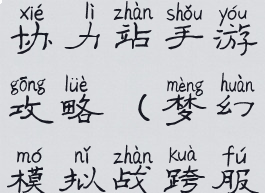 xié lì zhàn shǒu yóu
协力站手游
gōng lüè mèng huàn
攻略（梦幻
mó nǐ zhàn kuà fú
模拟战跨服